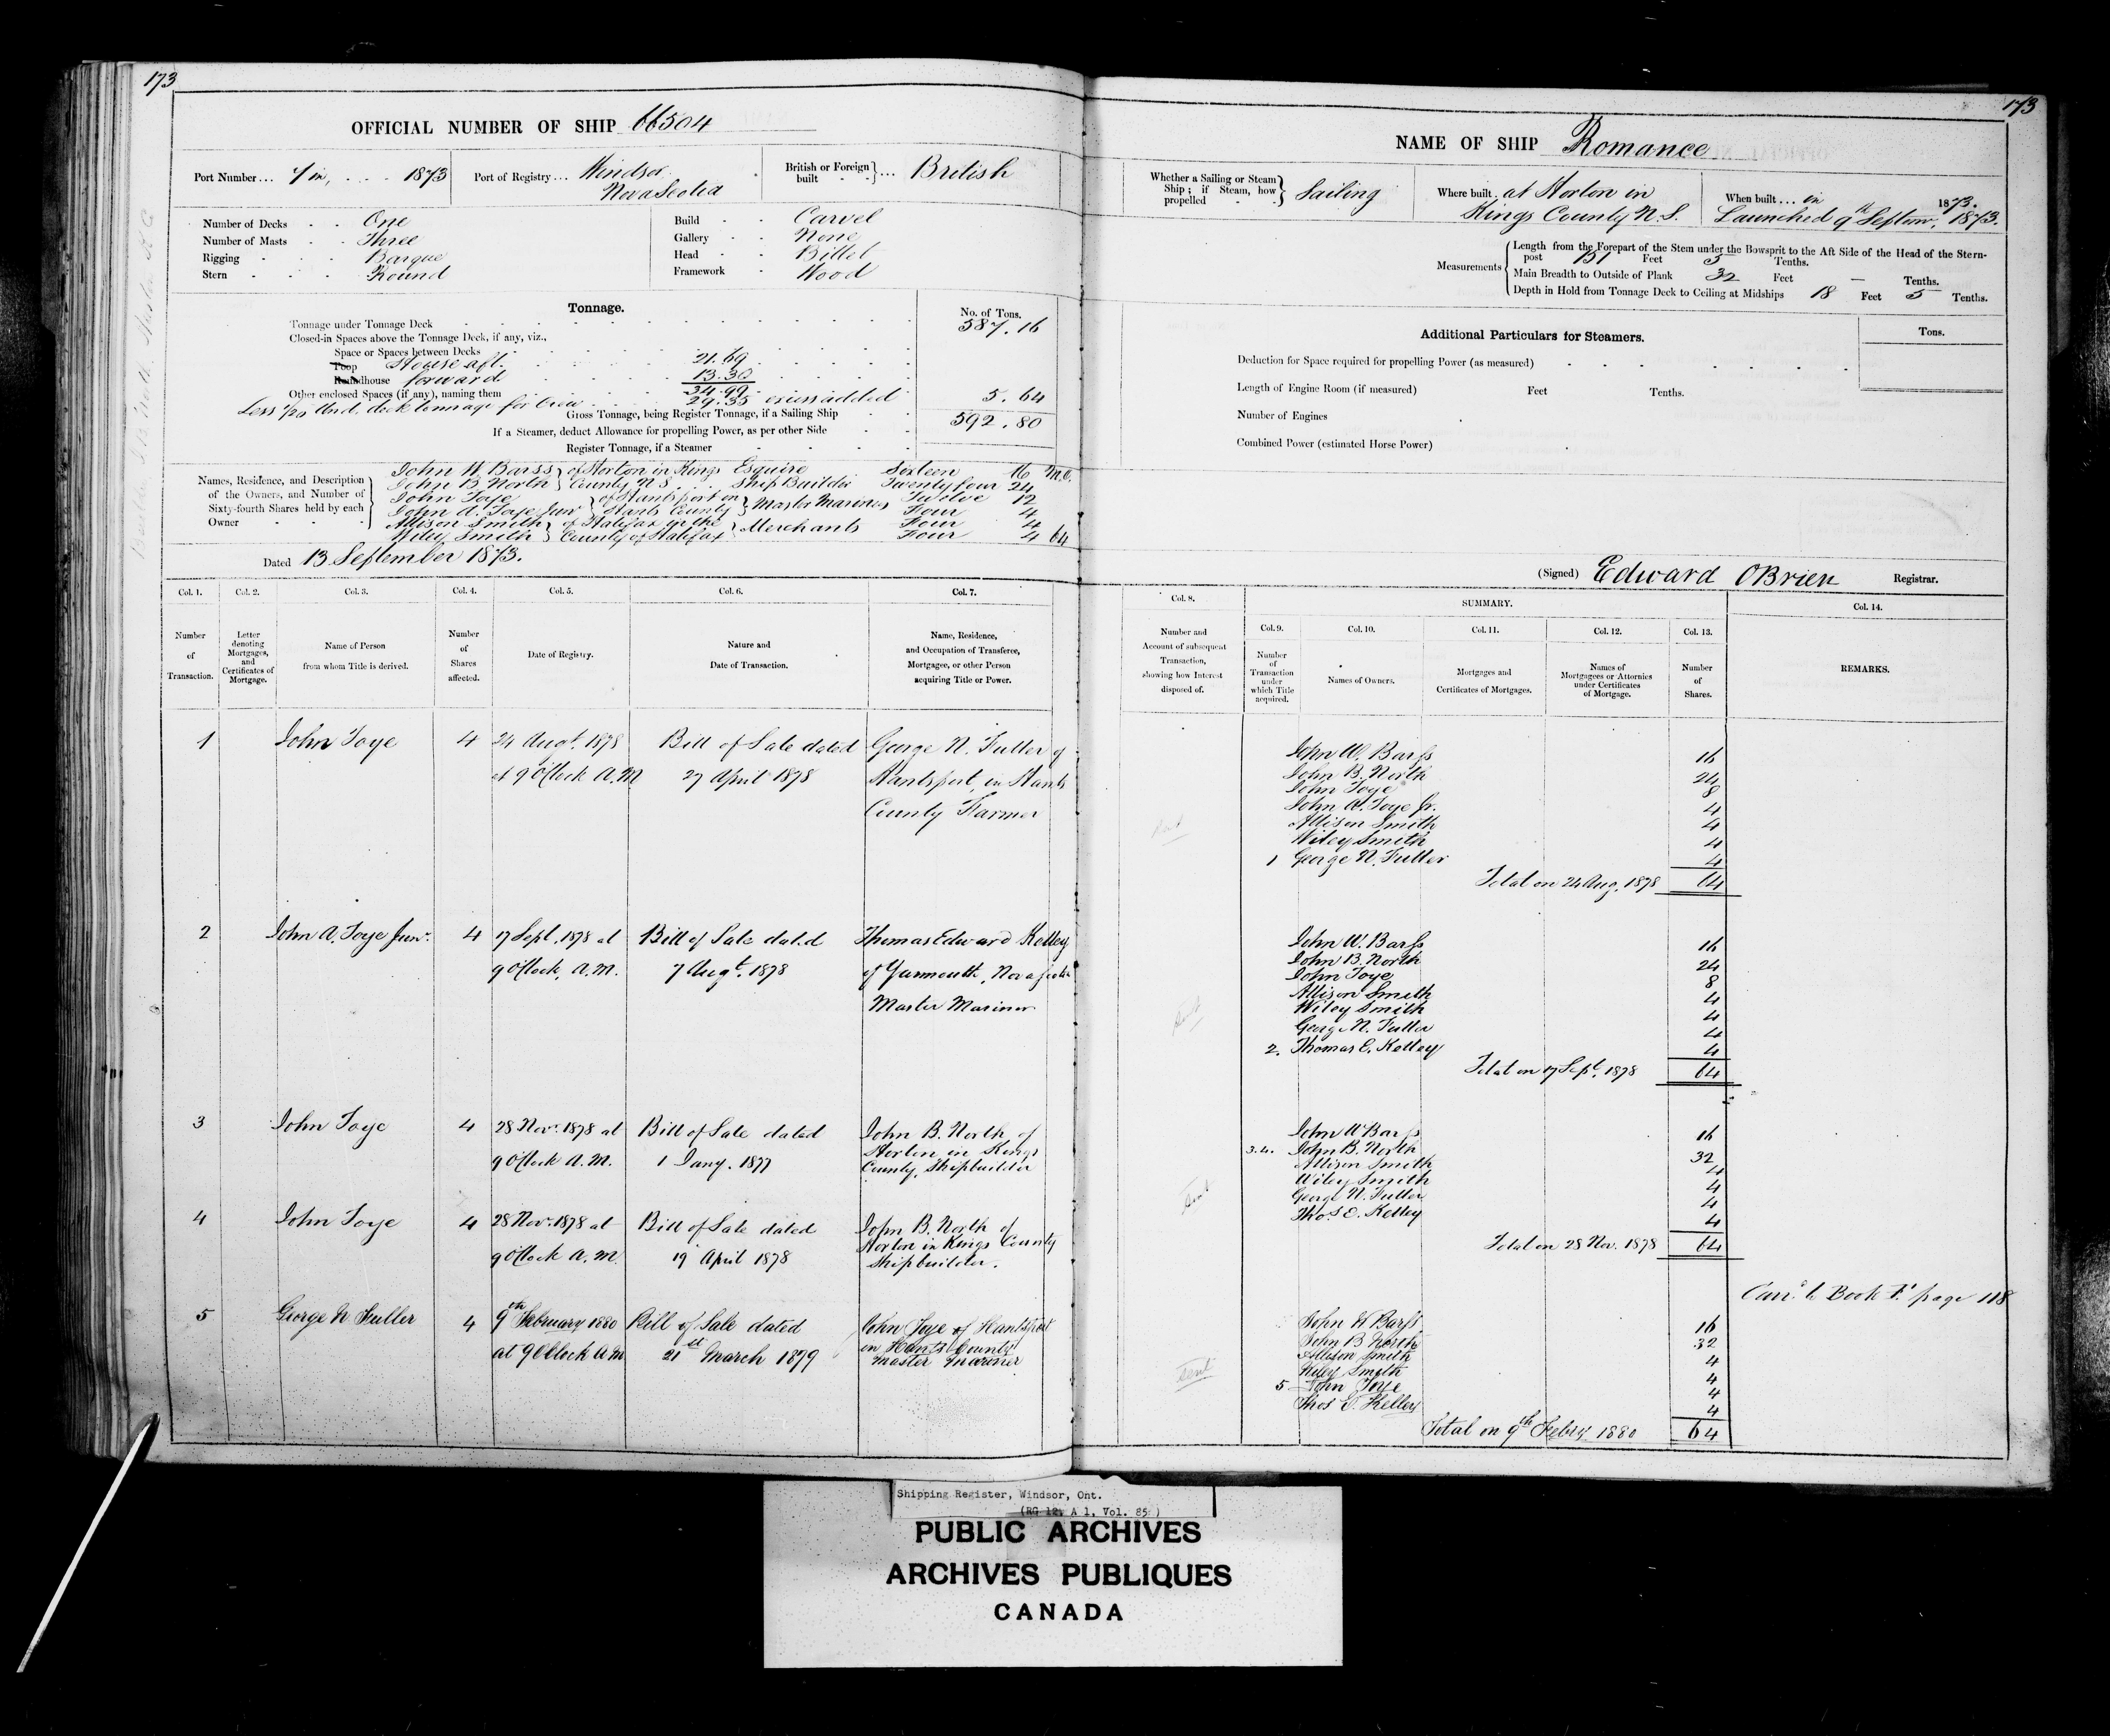 173
OFFICIAL NUMBER OF SHIP 66504
Port Number... 7 in, 1873
Port of Registry... Windsor
Nova Scotia
British or Foreign built ... British
Number of Decks One
Number of Masts Three
Rigging Barque
Stern Round
Build Carvel
Gallery None
Head Billet
Framework Wood
Tonnage.
No. of Tons.
Tonnage under Tonnage Deck 587.16
Closed-in Spaces above the Tonnage Deck, if any, viz.,
Space or Spaces between Decks
Poop House aft. 21.69
Roundhouse forward 13.30
34.99
Other enclosed Spaces (if any), naming them
Less 1/20 Und. deck tonnage for Crew 29.35 excess added 5.64
Gross Tonnage, being Register Tonnage, if a Sailing Ship 592.80
If a Steamer, deduct Allowance for propelling Power, as per other Side
Register Tonnage, if a Steamer
Names, Residence, and Description of the Owners, and Number of Sixty-fourth Shares held by each Owner
John W. Barss } of Horton in Kings Esquire Sixteen 16 M.O.
John B North } County N S Ship Builder Twenty four 24
John Toye } of Hantsport in } Master Mariners Twelve 12
John A. Toye Junr } Hants County Four 4
Allison Smith } of Halifax in the } Merchants Four 4
Wiley Smith } County of Halifax Four 4 64
Dated 13 September 1873.
Col. 1. Col. 2. Col. 3. Col. 4. Col. 5. Col. 6. Col. 7.
Number of Transaction.
Letter denoting Mortgages, and Certificates of Mortgage.
Name of Person from whom Title is derived.
Number of Shares affected.
Date of Registry.
Nature and Date of Transaction.
Name, Residence, and Occupation of Transferee, Mortgagee, or other Person acquiring Title or Power.
1 John Toye 4 24 Augt. 1878 Bill of Sale dated George N. Fuller of
at 9 O'Clock A.M 27 April 1878 Hantsport, in Hants
County Farmer
2 John A. Toye Junr. 4 17 Sept. 1878 at Bill of Sale dated Thomas Edward Kelley
9 O'Clock, A.M. 7 Augt. 1878 of Yarmouth, Nova Scotia
Master Mariner
3 John Toye 4 28 Novr. 1878 at Bill of Sale dated John B. North of
9 O'Clock A.M. 1 Jany. 1877 Horton in Kings
County, Shipbuilder
4 John Toye 4 28 Novr. 1878 at Bill of Sale dated John B. North of
9 O'Clock A.M. 19 April 1878 Horton in Kings County
Shipbuilder.
5 George N Fuller 4 9th February 1880 Bill of Sale dated John Toye of Hantsport
at 9 O'Clock A M 21st March 1879 in Hants County
Master Mariner
173
NAME OF SHIP Romance
Whether a Sailing or Steam Ship; if Steam, how propelled Sailing
Where built at Horton in
Kings County N.S.
When built... in 1873.
Launched 9th Septemr. 1873.
Measurements
Length from the Forepart of the Stem under the Bowsprit to the Aft Side of the Head of the Sternpost 151 Feet 5 Tenths.
Main Breadth to Outside of Plank 32 Feet — Tenths.
Depth in Hold from Tonnage Deck to Ceiling at Midships 18 Feet 5 Tenths.
Additional Particulars for Steamers.
Tons.
Deduction for Space required for propelling Power (as measured)
Length of Engine Room (if measured) Feet Tenths.
Number of Engines
Combined Power (estimated Horse Power)
(Signed) Edward OBrien Registrar.
Col. 8. SUMMARY. Col. 14.
Col. 9. Col. 10. Col. 11. Col. 12. Col. 13.
Number and Account of subsequent Transaction, showing how Interest disposed of.
Number of Transaction under which Title acquired.
Names of Owners.
Mortgages and Certificates of Mortgages.
Names of Mortgagees or Attornies under Certificates of Mortgage.
Number of Shares.
REMARKS.
John W. Barss 16
John B. North 24
John Toye 8
John A. Toye Jr. 4
Allison Smith 4
Wiley Smith 4
1 George N. Fuller 4
Total on 24 Aug. 1878 64
John W. Barss 16
John B. North 24
John Toye 8
Allison Smith 4
Wiley Smith 4
George N. Fuller 4
2. Thomas E. Kelley 4
Total on 17 Sept. 1878 64
Sent
John W Barss 16
3.4. John B. North 32
Allison Smith 4
Wiley Smith 4
George N. Fuller 4
Thos. E. Kelley 4
Total on 28 Nov. 1878 64
Sent
Carrd. to Book F. page 118
John W Barss 16
John B North 32
Allison Smith 4
Wiley Smith 4
5 John Toye 4
Thos E. Kelley 4
Total on 9th Febry 1880 64
Sent
Shipping Register, Windsor, Ont.
(RG 12, A 1, Vol. 85)
PUBLIC ARCHIVES
ARCHIVES PUBLIQUES
CANADA